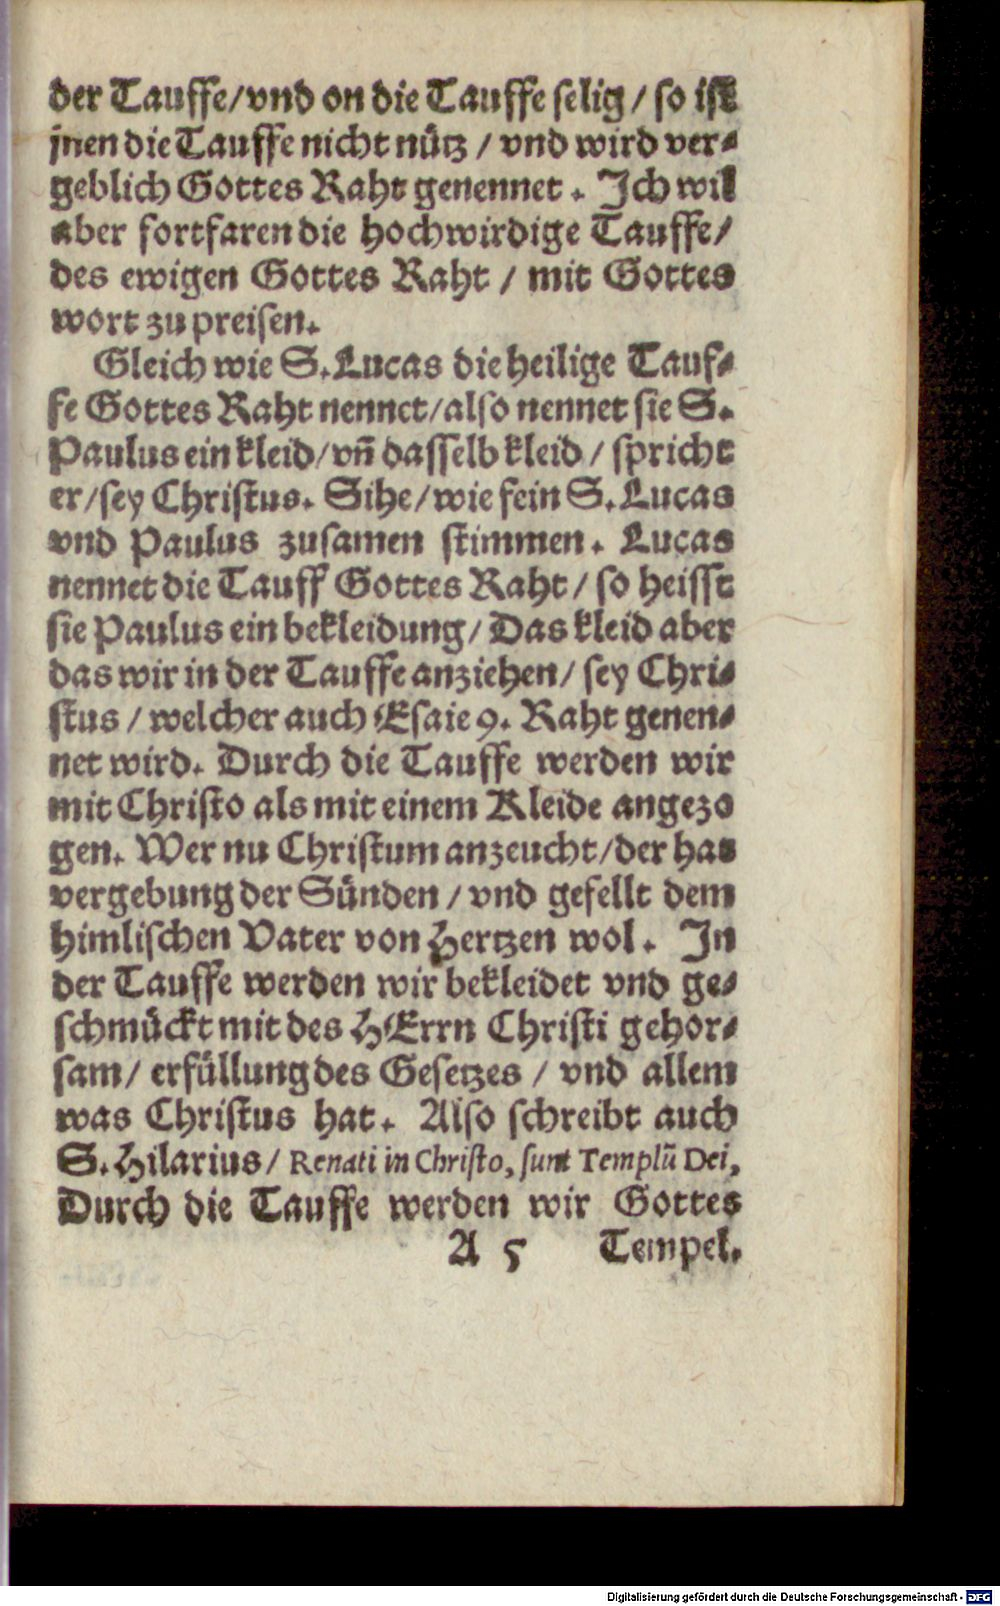 der Tauffe/vnd on die Tauffe selig/ so ist
jnen die Tauffe nicht nütz / vnd wird ver-
geblich Gottes Raht genennet. Ich wil
aber fortfaren die hochwirdige Tauffe/
des ewigen Gottes Raht / mit Gottes
wort zu preisen.
Gleich wie S. Lucas die heilige Tauf-
fe Gottes Raht nennet/also nennet sie S.
Paulus ein kleid/vñ dasselb kleid / spricht
er/sey Christus. Sihe/wie fein S. Lucas
vnd Paulus zusamen stimmen. Lucas
nennet die Tauff Gottes Raht/ so heisst
sie Paulus ein bekleidung/ Das kleid aber
das wir in der Tauffe anziehen/ sey Chri-
stus / welcher auch Esaie 9. Raht genen-
net wird. Durch die Tauffe werden wir
mit Christo als mit einem Kleide angezo
gen. Wer nu Christum anzeucht/der hat
vergebung der Sünden / vnd gefellt dem
himlischen Vater von Hertzen wol. In
der Tauffe werden wir bekleidet vnd ge-
schmückt mit des HErrn Christi gehor-
sam/ erfüllung des Gesetzes / vnd allem
was Christus hat. Also schreibt auch
S. Hilarius/ Renati in Christo, sunt Templũ Dei,
Durch die Tauffe werden wir Gottes
A 5 Tempel.
Digitalisierung gefördert durch die Deutsche Forschungsgemeinschaft - DFG